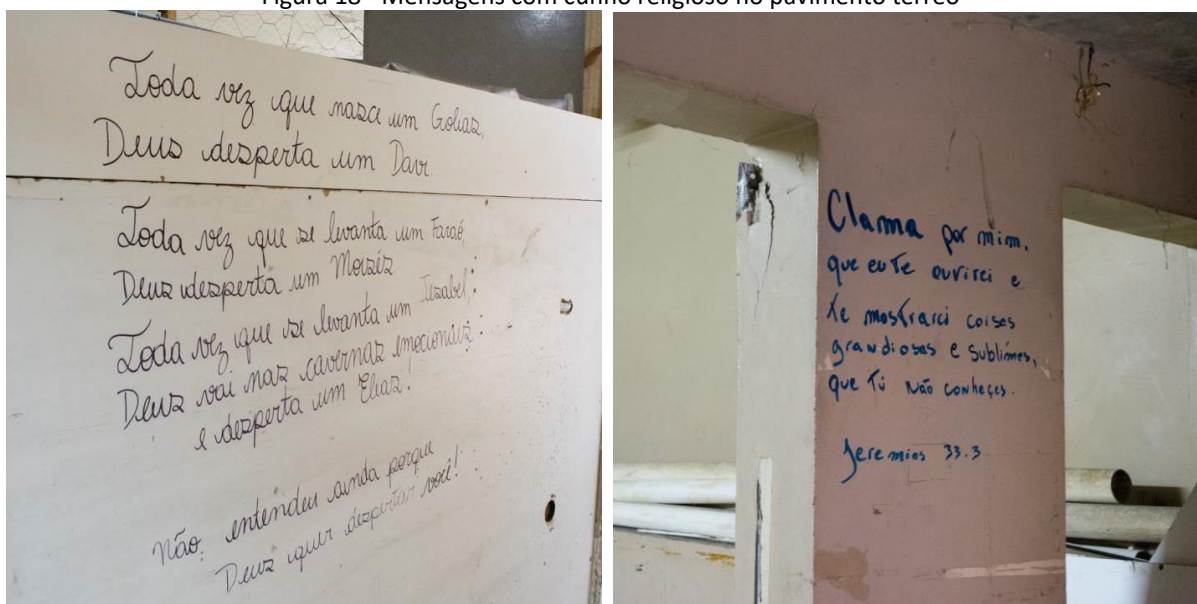 Figura 18 - Mensagens com cunho religioso no pavimento térreo
Toda vez que nasci um Golias,
Deus desperta um Davi.
Toda vez que se levanta um Faraó,
Deus desperta um Moiséz
Toda vez que se levanta um Jezabel,:
Deus vai nas cavernas emocionais:
e desperta um Elias!
Não entendeu ainda porque
Deus quer despertar você!
Clama por mim,
que eu Te ouvirei e
te mostrarei coisas
grandiosas e sublimes,
que Tú Não conheçes.
Jeremias 33.3